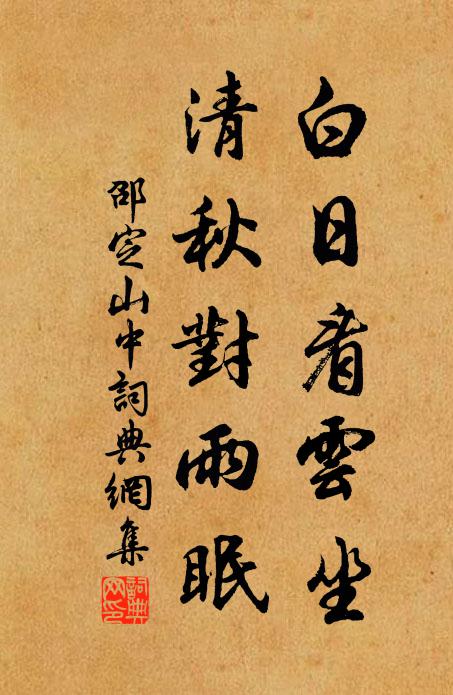 白日看雲坐
清秋對雨眠
邵定山中詞典網集
詞典網印